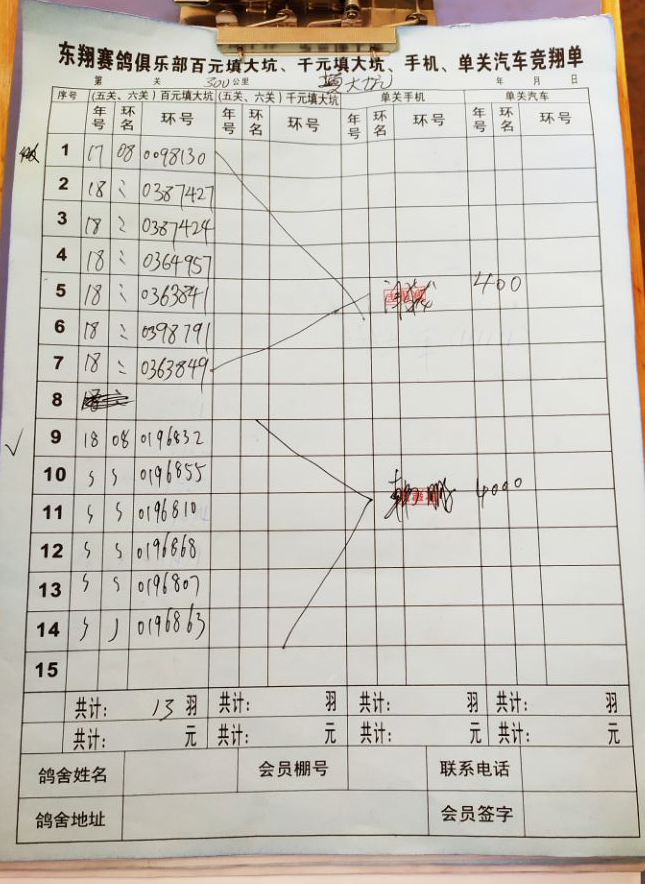 东翔赛鸽俱乐部百元填大坑、千元填大坑、手机、单关汽车竞翔单
第 关 300公里 填大坑 年 月 日
序号 (五关、六关)百元填大坑 (五关、六关)千元填大坑 单关手机 单关汽车
年号 环名 环号 年号 环名 环号 年号 环名 环号 年号 环名 环号
1 17 08 0098130
2 18 〃 0387427
3 18 〃 0387424
4 18 〃 0364957
5 18 〃 0363841 400
6 18 〃 0398791
7 18 〃 0363849
8
9 18 08 0196832
10 0196855
11 0196810 4000
12 0196868
13 0196807
14 0196863
15
共计: 13 羽 共计: 羽 共计: 羽 共计: 羽
共计: 元 共计: 元 共计: 元 共计: 元
鸽舍姓名 会员棚号 联系电话
鸽舍地址 会员签字